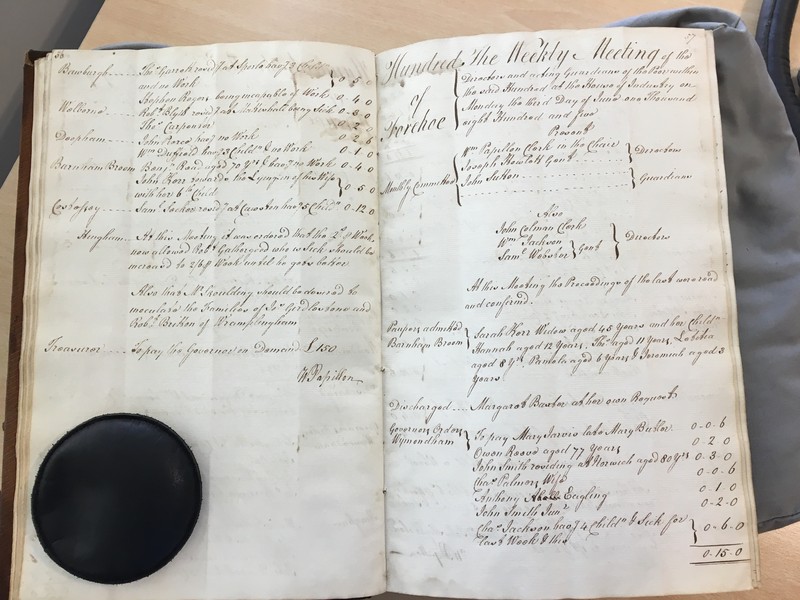 Bawburgh ---- Thos. Garrott resid.g at Sporle hav.g 2 Child.n
and no Work } 0 5 0
Stephen Roger being incapable of Work 0 4 0
Welborne --- Rob.t Blyth resid.g at Mattishall being Sick 0-3-0
Thos. Carpenter 0-2-0
Deopham ---- John Peirce hav.g no Work 0-2-6
Wm. Duffield hav.g 3 Child.n & no Work 0 1 0
Barnham Broom Benj.n Road aged 70 Y.rs & hav.g no Work 0-4-0
John Kerr towards the Lying in of his Wife
with her 6th Child } 0 5 0
Costessey --- Saml. resid.g at Cawston hav.g 5 Child.n 0-12-0
Hingham --- At this Meeting it was ordered that the 2/ P Week
now allowed Rob.t Gathergood who is Sick should be
increased to 2/6 P Week until he gets better
Also that Mr. Goulding should be desired to
inoculate the Families of Jas. Girdlestone and
Rob.t Britton of Wramplingham
Treasurer --- To pay the Governor on Demand £150
W Papillon
57
Hundred
of
Forehoe
The Weekly Meeting of the
Directors and acting Guardians of the Poor within
the said Hundred at the House of Industry on
Monday the third Day of June one Thousand
eight Hundred and five
Present
Wm. Papillon Clerk in the Chair
Joseph Howlett Gent } Directors
Monthly Committee { John Sutton } Guardians
Also
John Colman Clerk
Wm. Jackson
Saml. Webster } Gent } Directors
At this Meeting the Proceedings of the last were read
and confirmed.
Paupers admitted
Barnham Broom } Sarah Kerr Widow aged 45 Years and her Child.n
Hannah aged 12 Years, Thos. aged 11 Years, Letitia
aged 8 Y.rs, Pamela aged 6 Years & Jeremiah aged 3
Years
Discharged ---- Margaret Baxter at her own Request
Governors Orders
Wymondham } To pay Mary Jarvis late Mary Butler 0-0-6
Owen Reeve aged 77 Years 0-2-0
John Smith residing at Norwich aged 80 Y.rs 0-3-0
Chas. Palmers Wife 0-0-6
Anthony Eagling 0-1-0
John Smith Junr. 0-2-0
Chas. Jackson hav.g 4 Child.n & Sick for
last Week & this } 0-6-0
0-15-0